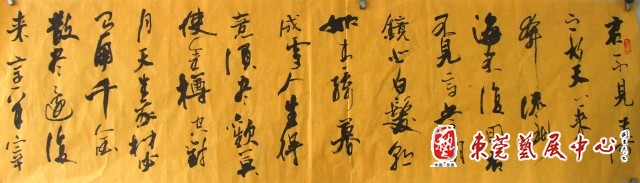 君不見黄
之水天上来
奔流到
海不復回君
不見高堂明
鏡悲白髮朝
如青絲暮
成雪人生得
意須尽歡莫
使金樽空對
月天生我材必
有用千金
散尽還復
来烹羊宰
東莞藝展中心